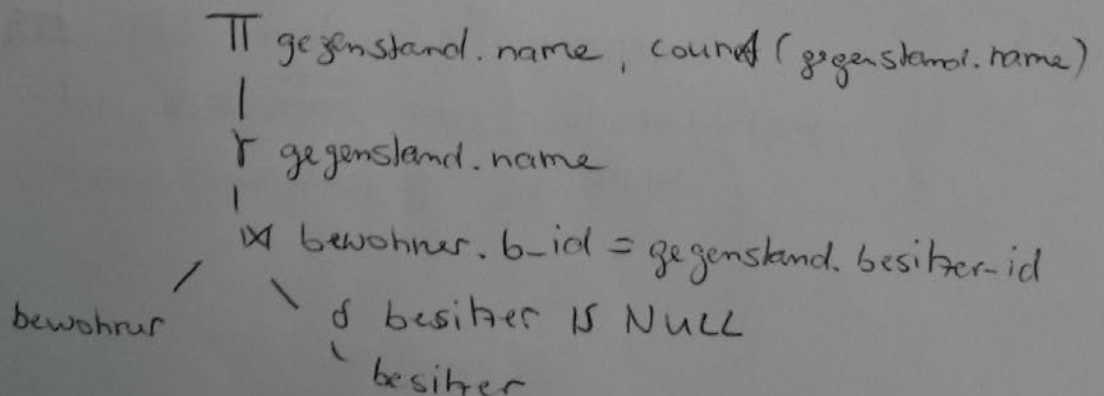 π gegenstand.name, count(gegenstand.name)
γ gegenstand.name
⋈ bewohner.b_id = gegenstand.besitzer_id
bewohner
σ besitzer IS NULL
besitzer